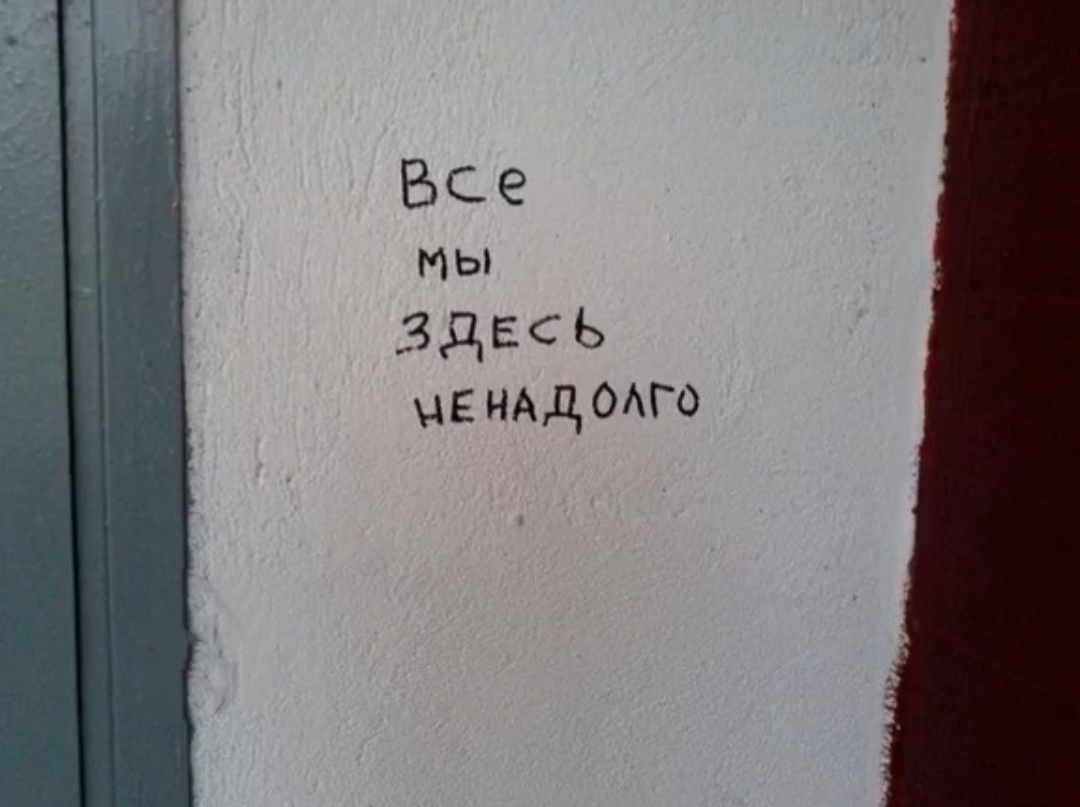 Все
мы
ЗДЕСЬ
НЕНАДОЛГО